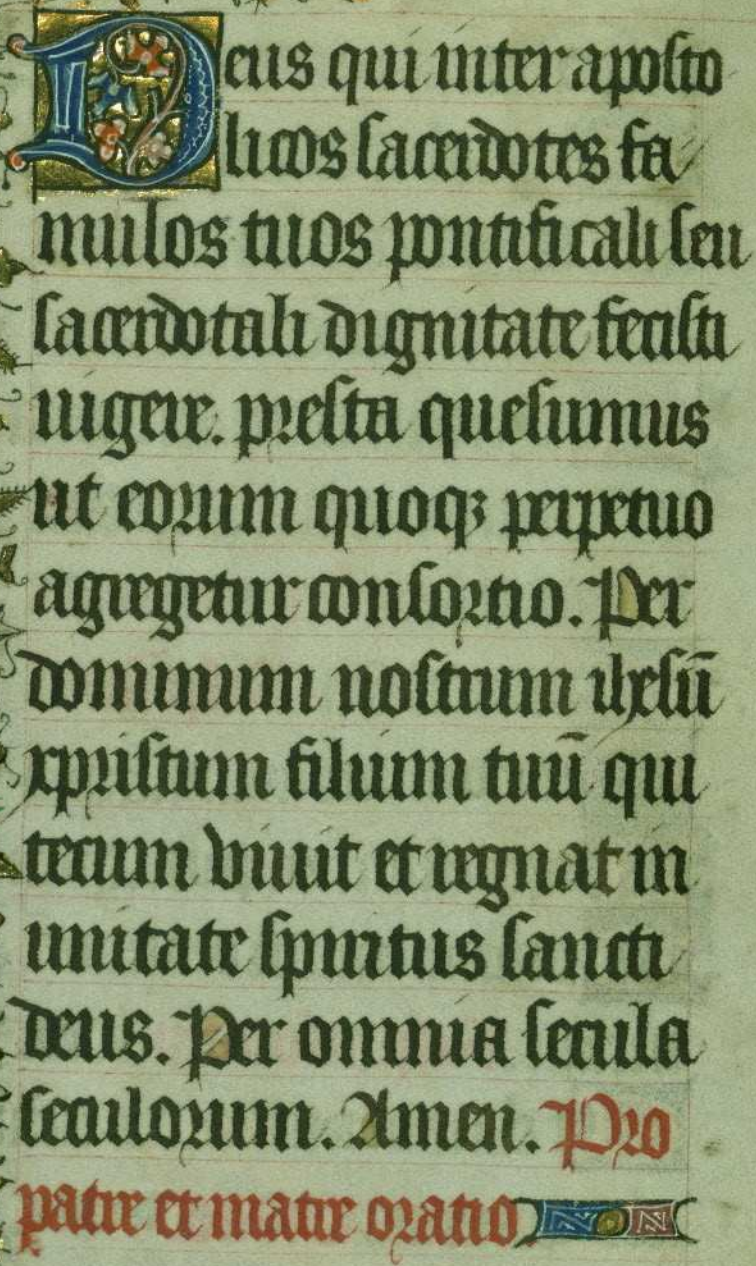 Deus qui inter aposto
licos sacerdotes fa
mulos tuos pontificali seu
sacerdotali dignitate fecisti
uigere. presta quesumus
ut eorum quoqȝ perpetuo
agregetur consortio. Per
dominum nostrum ihesū
xpristum filium tuū qui
tecum viuit et regnat in
unitate spiritus sancti
deus. Per omnia secula
seculorum. Amen. Pro
patre et matre oratio